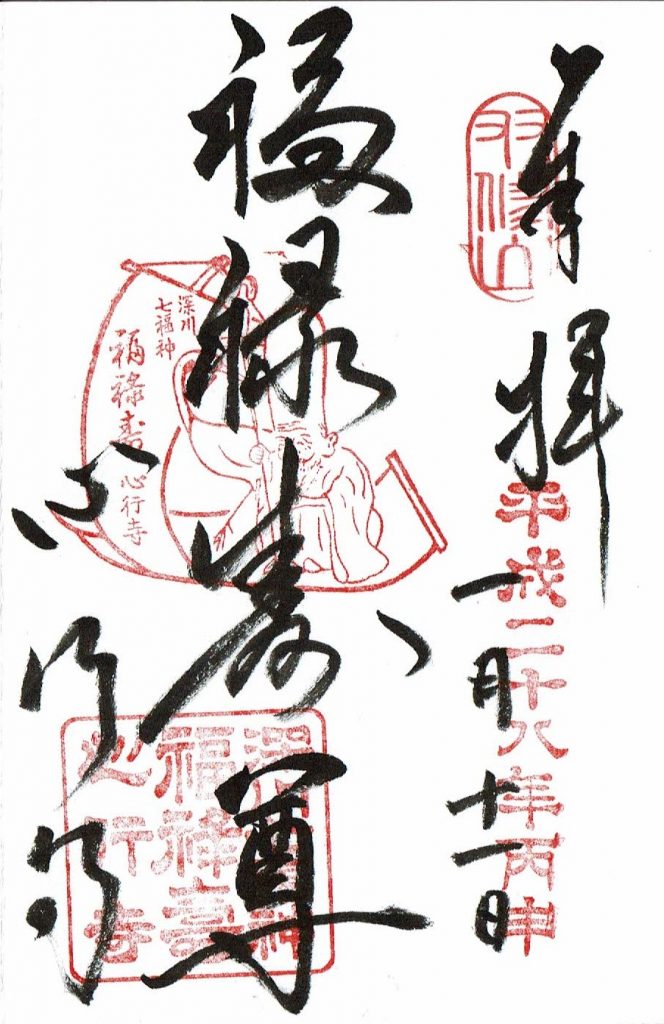 奉拝
双修山
平成二十八年丙申
一月十一日
福禄寿尊
深川
七福神
福禄寿
心行寺
心行寺
福祿壽
心行寺